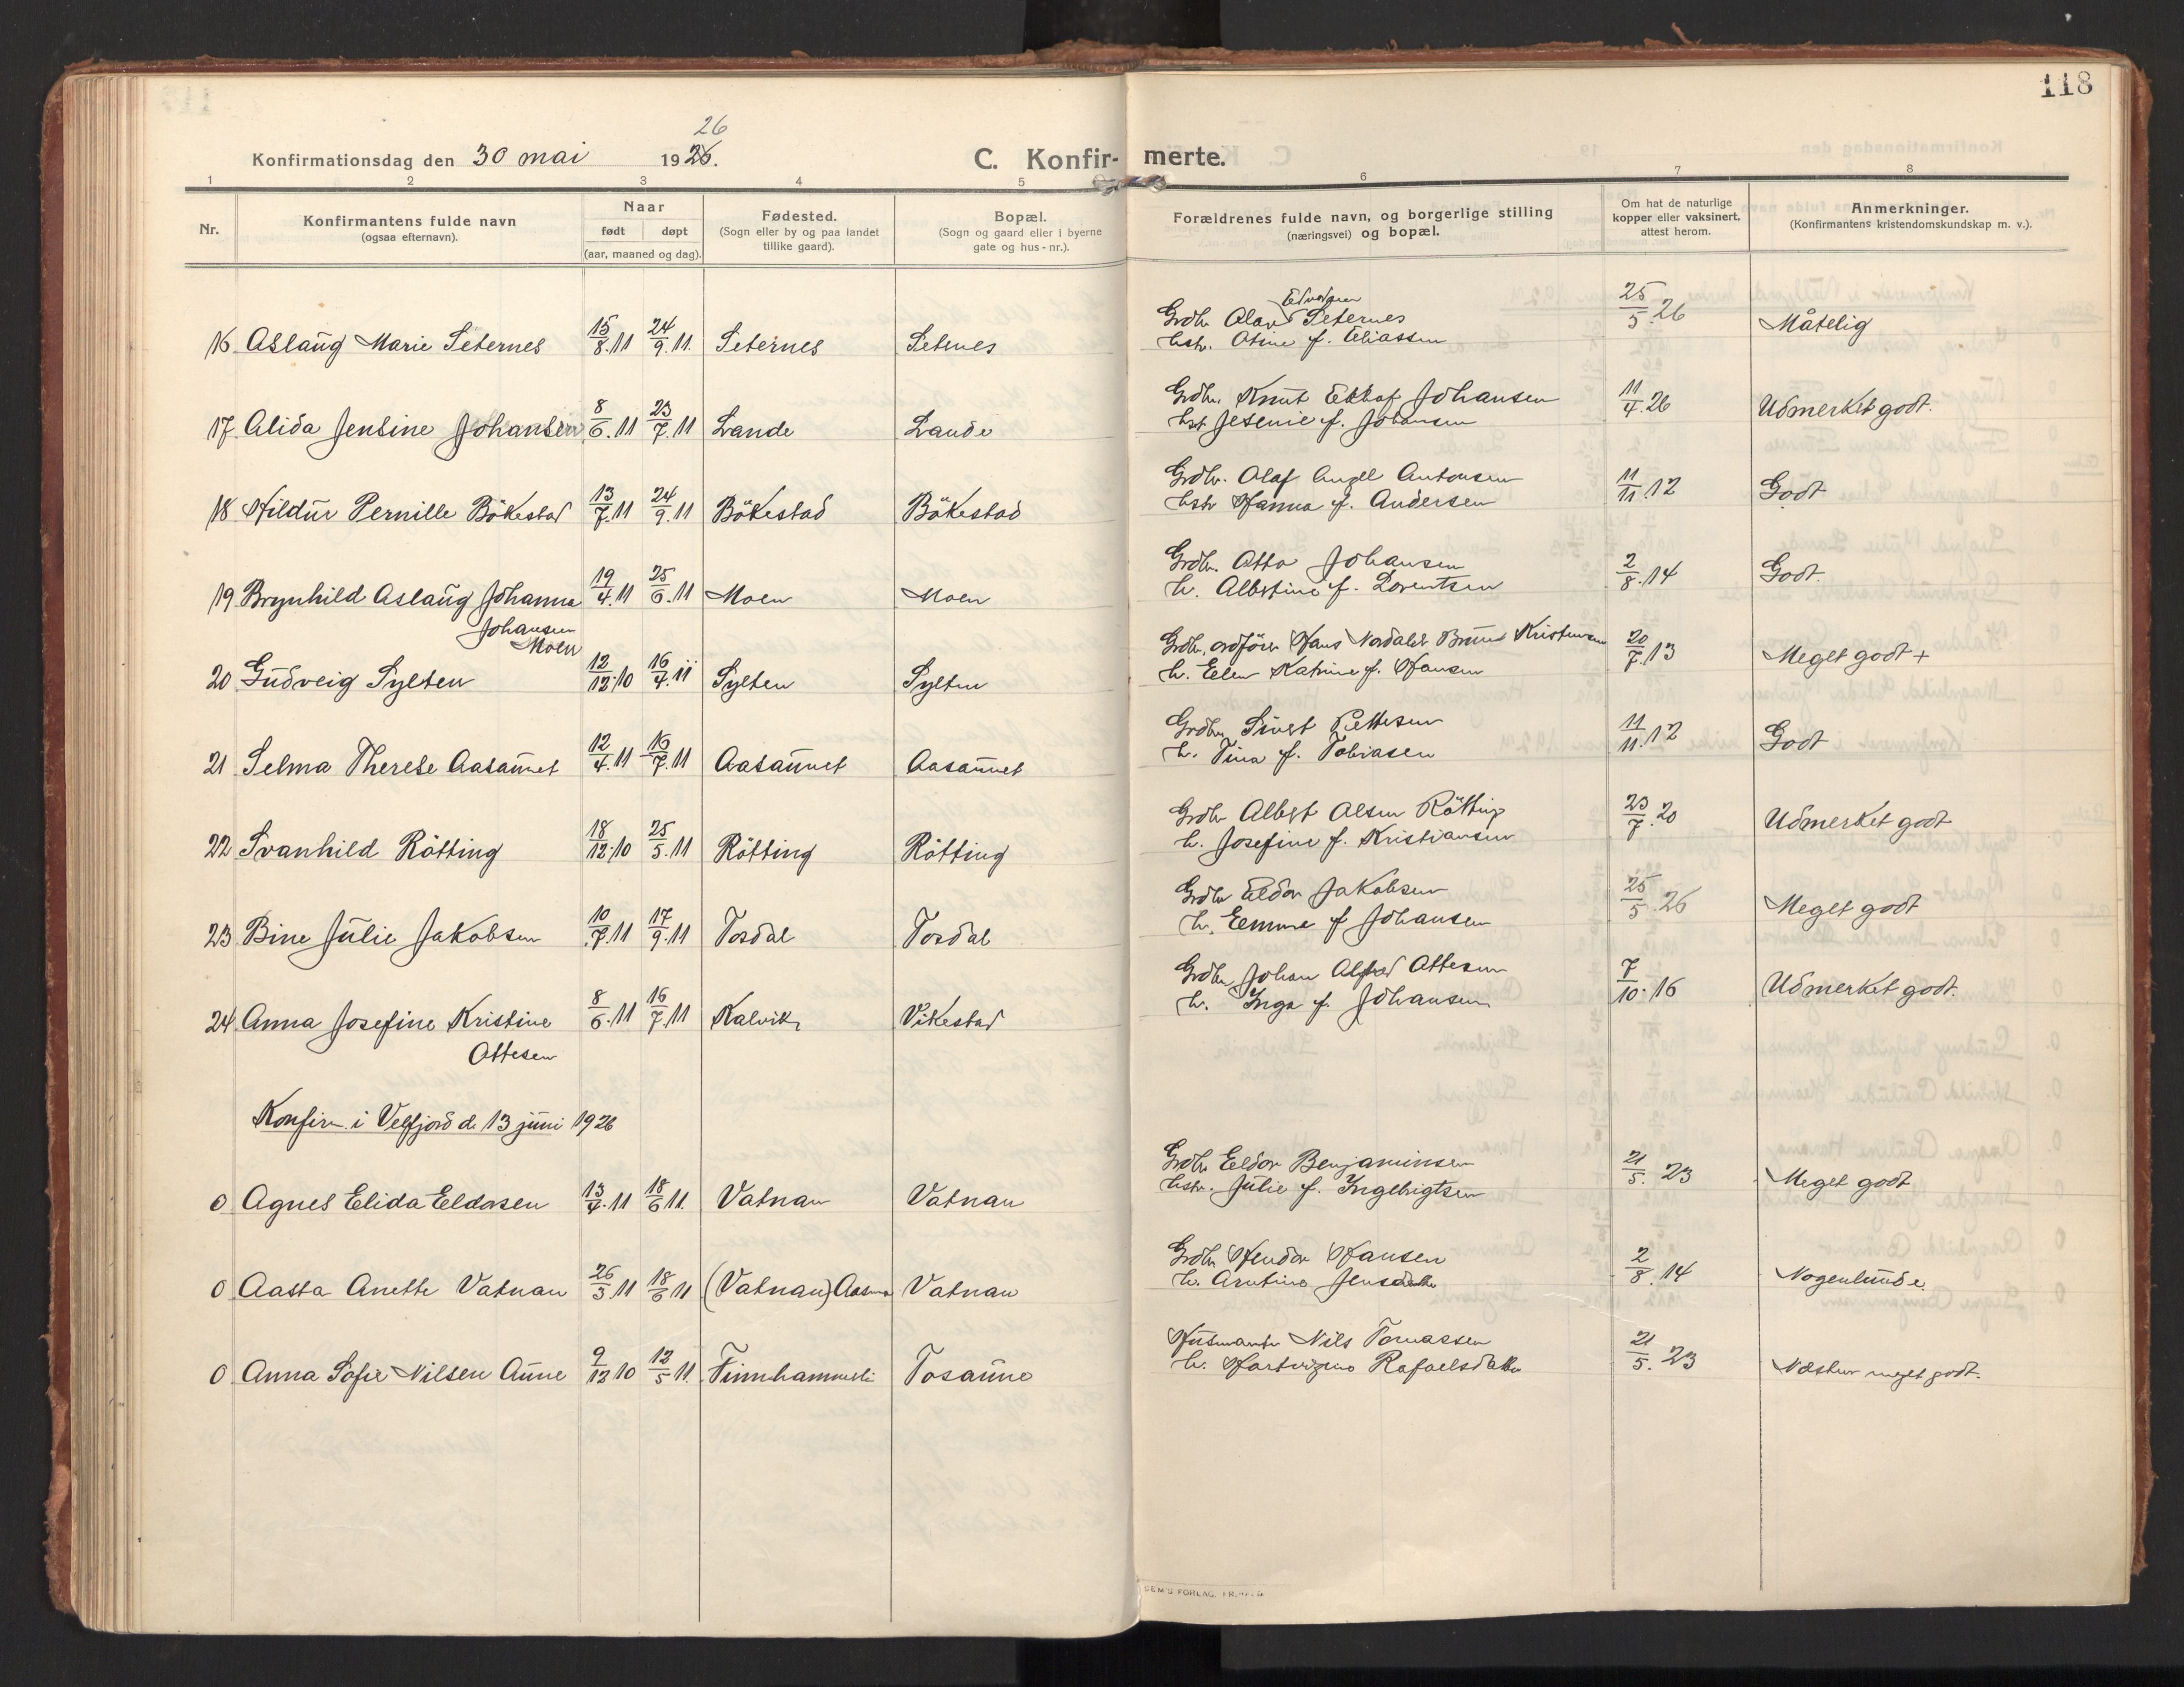 118
26
Konfirmationsdag den 30 mai 1926.
C. Konfir- merte.
1 2 3 4 5 6 7 8
Nr.
Konfirmantens fulde navn
(ogsaa efternavn).
Naar
født døpt
(aar, maaned og dag).
Fødested.
(Sogn eller by og paa landet
tillike gaard).
Bopæl.
(Sogn og gaard eller i byerne
gate og hus-nr.).
Forældrenes fulde navn, og borgerlige stilling
(næringsvei) og bopæl.
Om hat de naturlige
kopper eller vaksinert,
attest herom.
Anmerkninger.
(Konfirmantens kristendomskundskap m. v.).
16 Aslaug Marie Seternes 15/8.11 24/9.11. Seternes Seternes
Grdbr. Olav Seternes
hstr. Otine f. Eliassen
25/5.26 Måtelig
17. Alida Jensine Johansen 8/6.11 23/7.11 Lande Lande
Grdbr. Knut Johansen
hst Jesenie f. Johansen
11/4.26 Udmerket godt.
18 Hildur Pernille Bökestad 13/7.11 24/9.11 Bökestad Bökestad
Grdbr. Olaf Angell Antonsen
hstr Hanna f. Andersen
11/11.12 Godt
19 Brynhild Aslaug Johanna 19/4.11 25/6.11 Moen Moen
Johansen
Moen
Grdbr. Otto Johansen
h. Albertine f. Lorentsen
2/8.14 Godt.
20 Gudveig Sylten 12/12.10 16/4.11 Sylten Sylten
Grdbr, ordfører Hans Nordahl Bruun Kristensen
h. Elen Katrine f. Hansen
20/7.13 Meget godt +
21 Selma Therese Aasaunet 12/4.11 16/7.11 Aasaunet Aasaunet
Grdbr. Sivert Pettersen
h. Tina f. Tobiasen
11/11.12 Godt
22 Svanhild Rötting 18/12.10 25/5.11 Rötting Rötting
Grdbr Albert Olsen Rötting
h. Josefine f. Kristiansen
23/7.20 Udmerket godt
23 Bine Julie Jakobsen 10/7.11 17/9.11 Tosdal Tosdal
Grdbr Eldor Jakobsen
h. Emma f Johansen
25/5.26 Meget godt
24 Anna Josefine Kristine 8/6.11 16/7.11 Kalvik Vikestad
Ottesen
Grdbr Johan Alfred Ottesen
h. Inga f. Johansen
7/10.16 Udmerket godt.
Konfirm. i Velfjord d. 13 juni 1926
0 Agnes Elida Eldorsen 13/4.11 18/6 11. Vatnan Vatnan
Grdbr Eldor Benjaminsen
hstr. Julie f. Ingebrigtsen
21/5. 23 Meget godt
0 Aasta Anette Vatnan 26/3.11 18/6 11 (Vatnan) Vatnan
Grdbr Hendor Hansen
h.
2/8.14 Nogenlunde.
0 Anna Sofie Nilsen Aune 9/12 10 12/5 11. Finnhammerli Tosaune
Husmand Nils Tomassen
h. Rafaelsdatter
21/5. 23 Næsten meget godt.